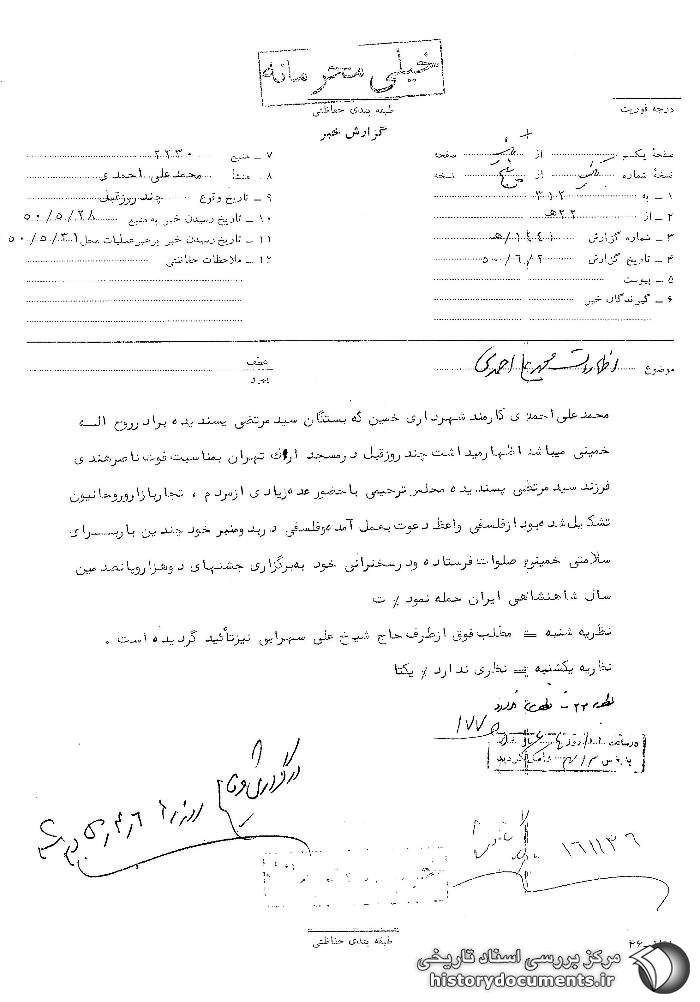 خیلی محرمانه
طبقه بندی حفاظتی
درجه فوریت
گزارش خبر
صفحهٔ یکم از صفحه
نسخهٔ شماره از نسخه
۱ ـ به ۳۱۲
۲ ـ از ۲۲ هـ
۳ ـ شماره گزارش
۴ ـ تاریخ گزارش ۵۰/۶/۲
۵ ـ پیوست
۶ ـ گیرندگان خبر
۷ ـ منبع ۲۲۳۰
۸ ـ منشأ محمدعلی احمدی
۹ ـ تاریخ وقوع چند روزقبل
۱۰ ـ تاریخ رسیدن خبر به منبع ۵۰/۵/۲۸
۱۱ ـ تاریخ رسیدن خبر برهبرعملیات محل ۵۰/۵/۳۱
۱۲ ـ ملاحظات حفاظتی
موضوع اظهارات محمدعلی احمدی
عطف
پیرو
محمدعلی احمدی کارمند شهرداری خمین که بستگان سید مرتضی پسندیده برادر روح اله
خمینی میباشد اظهارمیداشت چند روزقبل درمسجد ارک تهران بمناسبت فوت ناصرهندی
فرزند سید مرتضی پسندیده مجلس ترحیمی باحضورعده زیادی ازمردم ، تجاربازاروروحانیون
تشکیل شده بود ازفلسفی واعظ دعوت بعمل آمده وفلسفی دربدومنبر خود چندین باربرای
سلامتی خمینی صلوات فرستاده ودرسخنرانی خود به برگزاری جشنهای دوهزاروپانصدمین
سال شاهنشاهی ایران حمله نمود / ت
نظریه شنبه ـ مطلب فوق ازطرف حاج شیخ علی سهرابی نیزتأئید گردیده است .
نظریه یکشنبه ـ نظری ندارد / یکتا
۱۶۱۱۳۶
طبقه بندی حفاظتی
مرکز بررسی اسناد تاریخی
historydocuments.ir